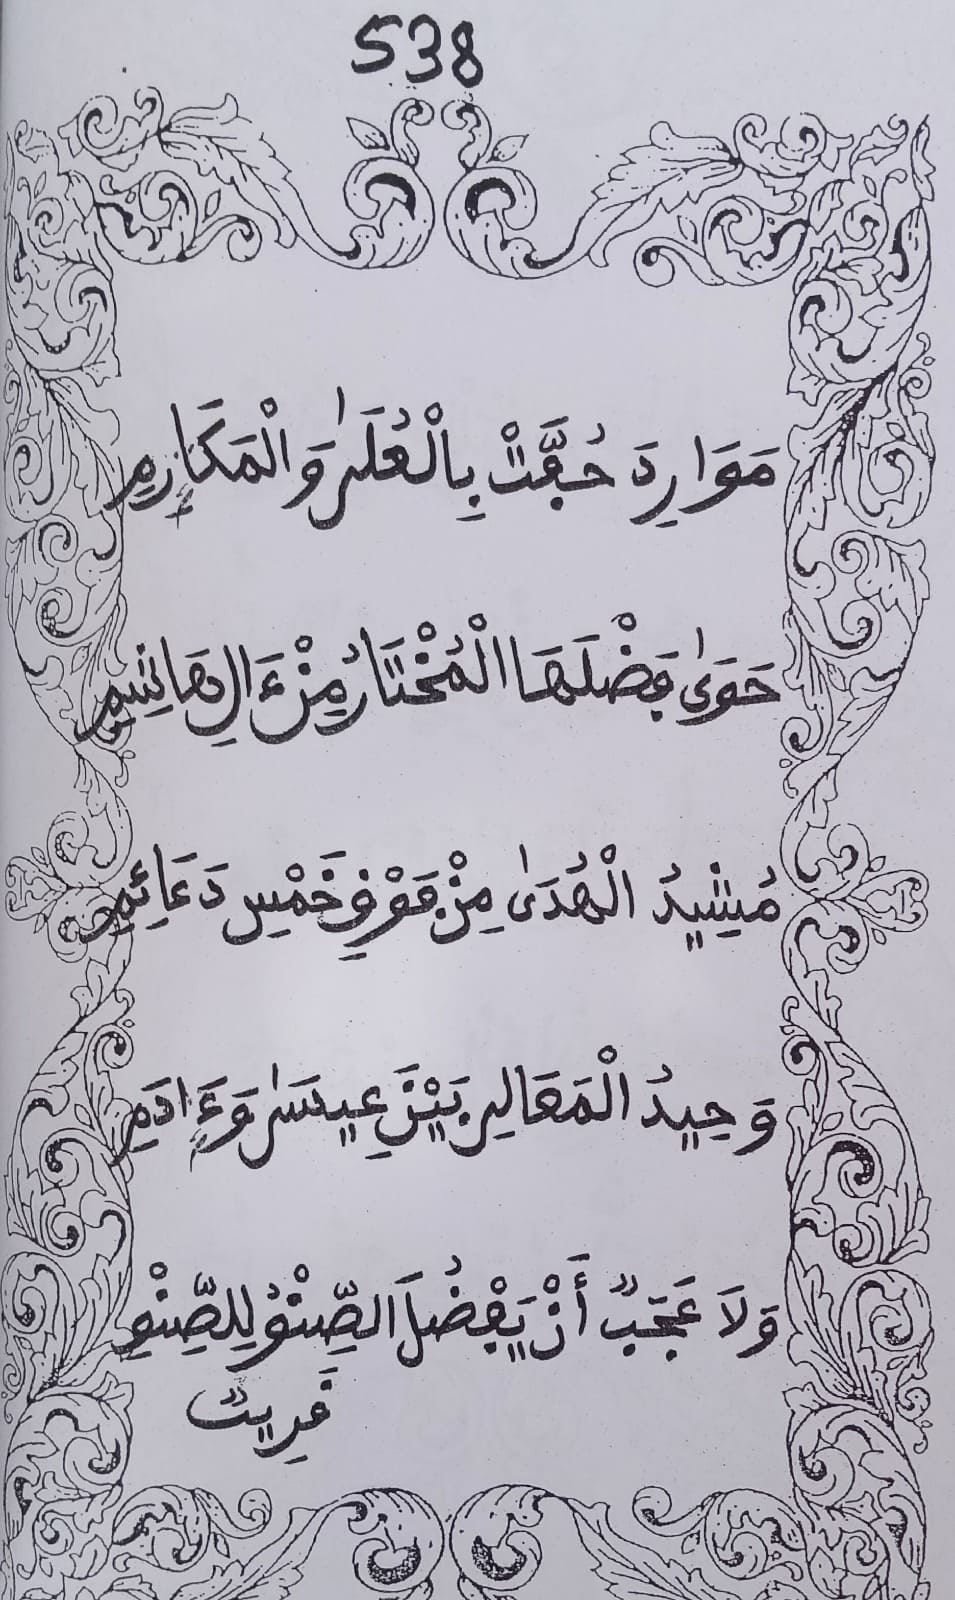 538
مَوَارِدَ حُفَّتْ بِالْعُلَىٰ وَالْمَكَارِمِ
حَوَىٰ فَضْلَهَا الْمُخْتَارُ مِنْ ءَالِ هَاشِمِ
مُشِيدُ الْهُدَىٰ مِنْ فَوْقِ خَمْسِ دَعَائِمِ
وَحِيدُ الْمَعَالِي بَيْنَ عِيسَىٰ وَءَادَمِ
وَلَا عَجَبٌ أَنْ يَفْضُلَ الصِّنْوُ لِلصِّنْوِ